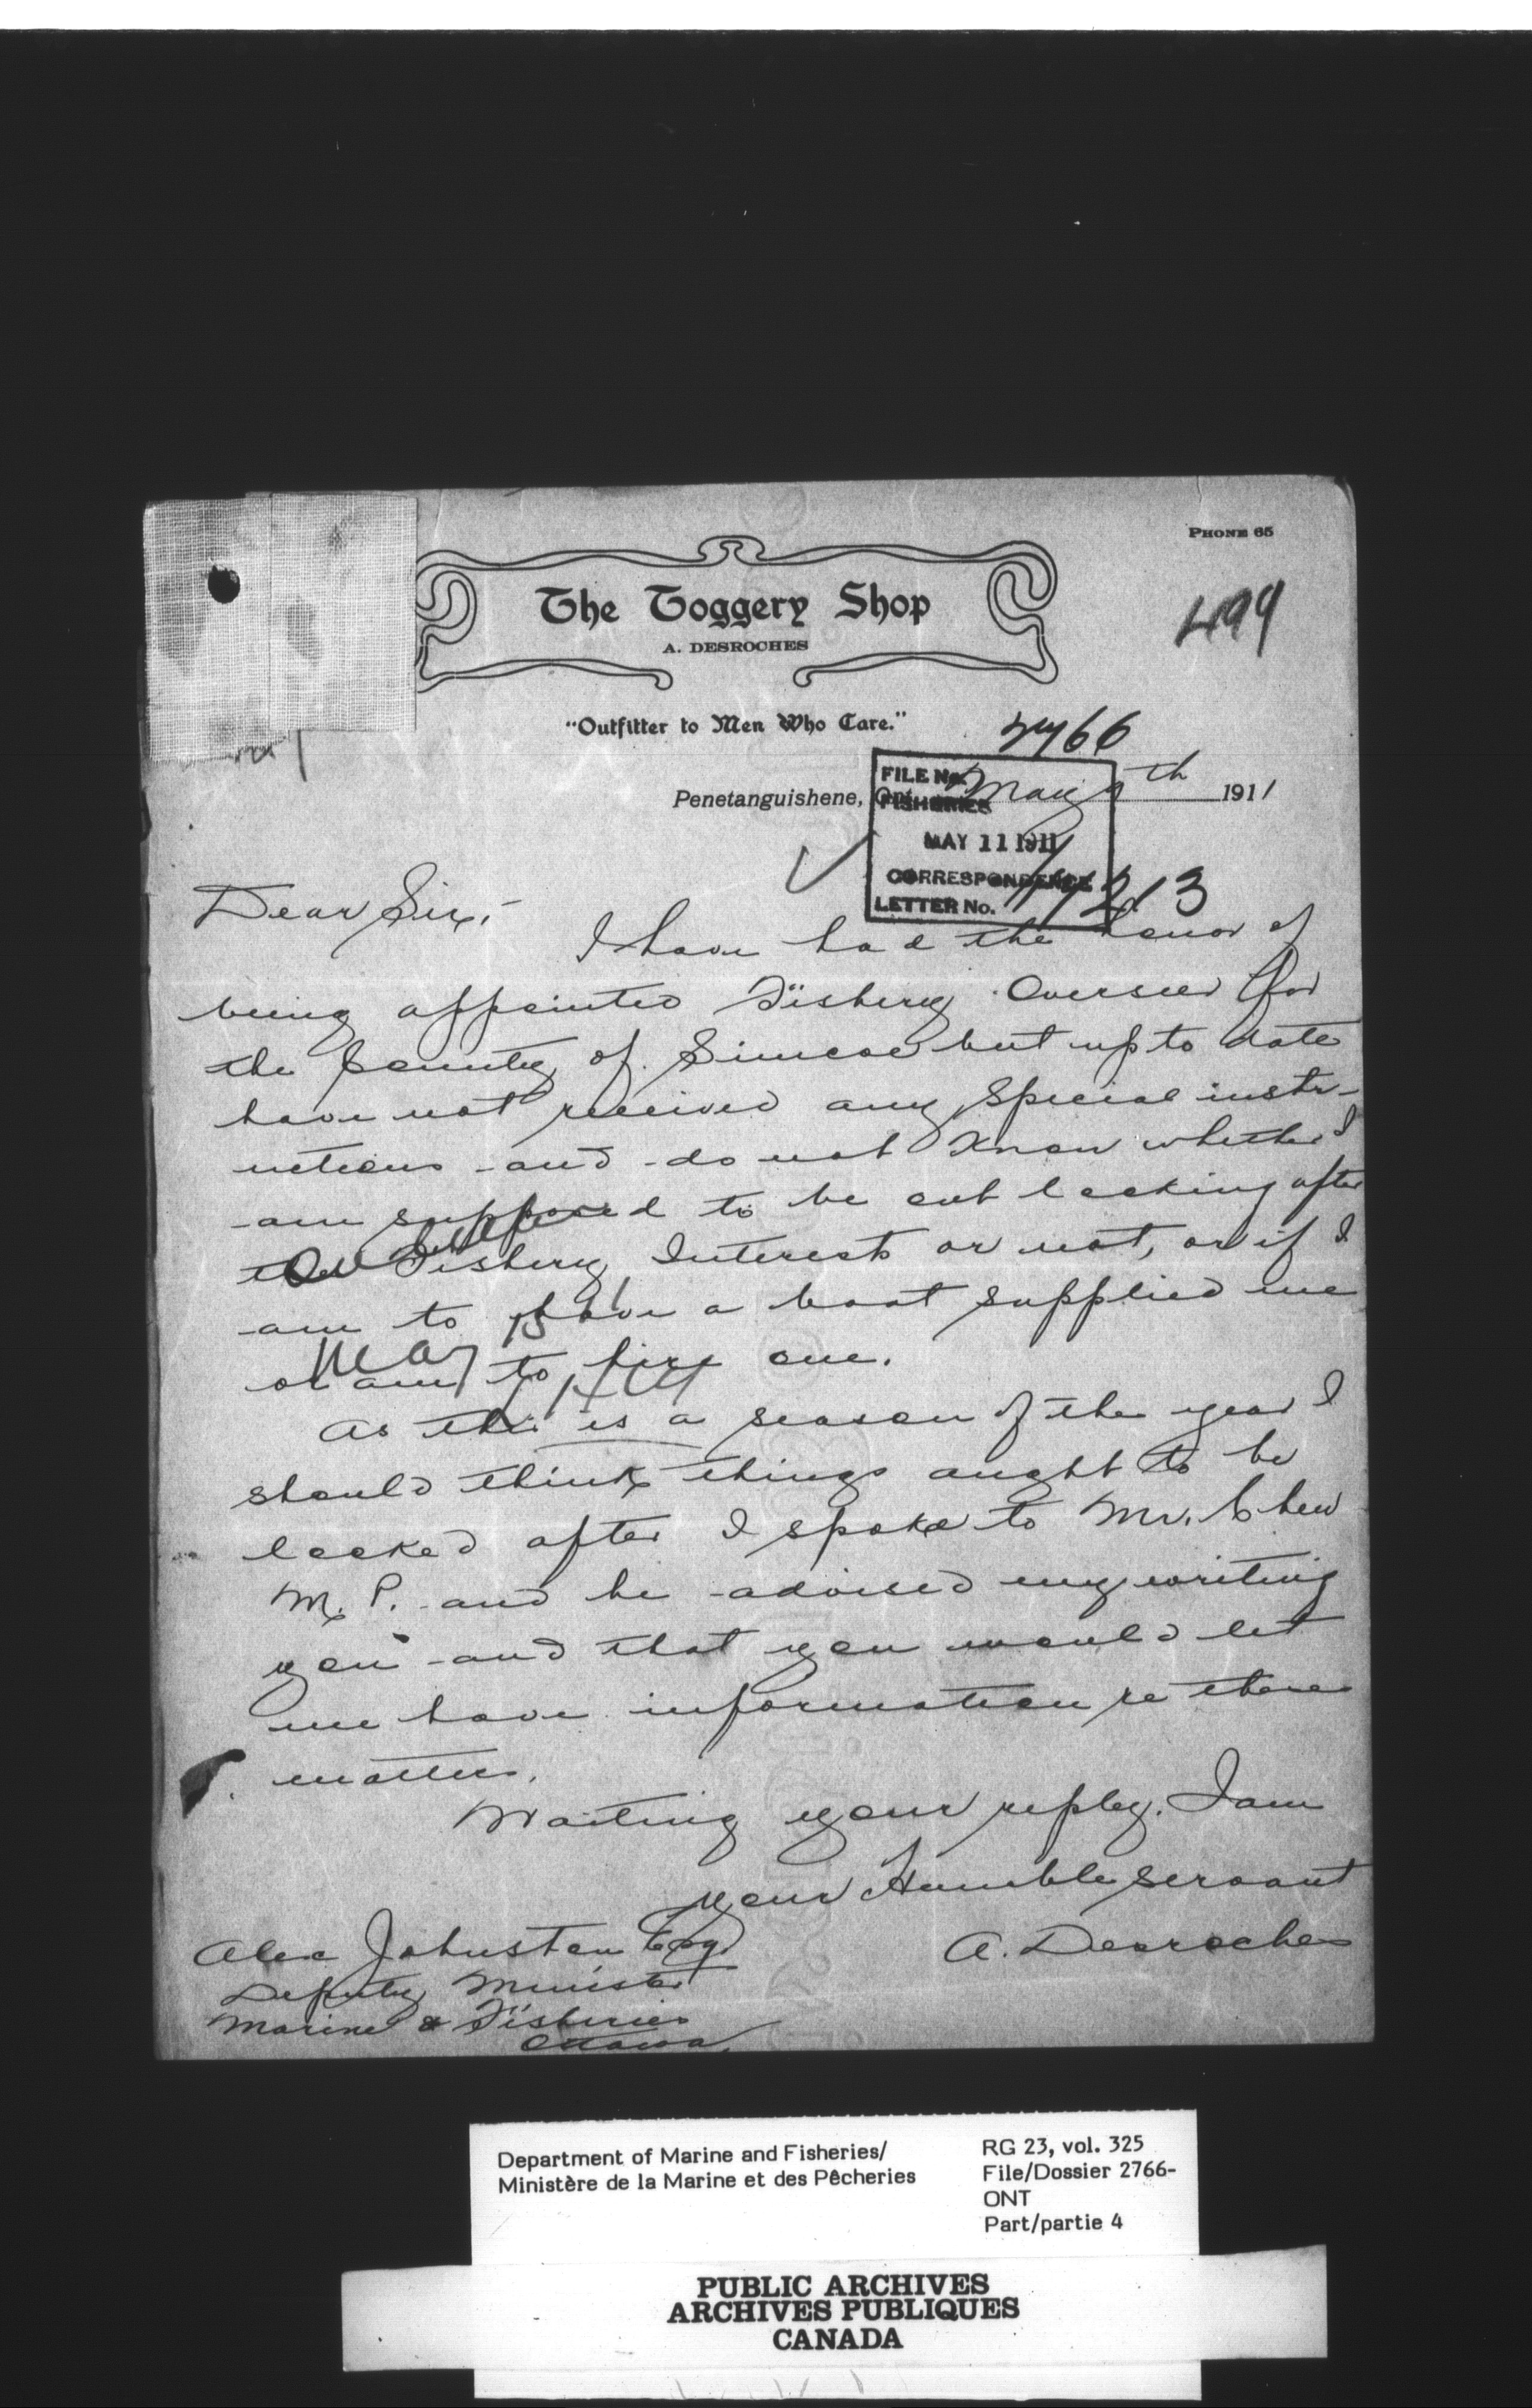 PHONE 65
The Toggery Shop
A. DESROCHES
499
"Outfitter to Men Who Care."
2766
FILE No.
Penetanguishene, Ont. May th 1911
FISHERIES
MAY 11 1911
CORRESPONDENCE
LETTER No. 213
Dear Sir,-
I have had the honor of
being appointed Fishery Overseer for
the County of Simcoe but up to date
have not received any special instr-
uctions and do not know whether I
am supposed to be out looking after
the Fishery Interests or not, or if I
am to have a boat supplied me
or am to hire one.
May
As this is a season of the year I
should think things aught to be
looked after I spoke to Mr. Chew
M.P. and he advised my writing
you and that you would let
me have information re these
matters.
Waiting your reply. I am
your Humble servant
A. Desroches
Alex Johnston Esq
Deputy Minister
Marine & Fisheries
Ottawa
Department of Marine and Fisheries/
Ministère de la Marine et des Pêcheries
RG 23, vol. 325
File/Dossier 2766-
ONT
Part/partie 4
PUBLIC ARCHIVES
ARCHIVES PUBLIQUES
CANADA